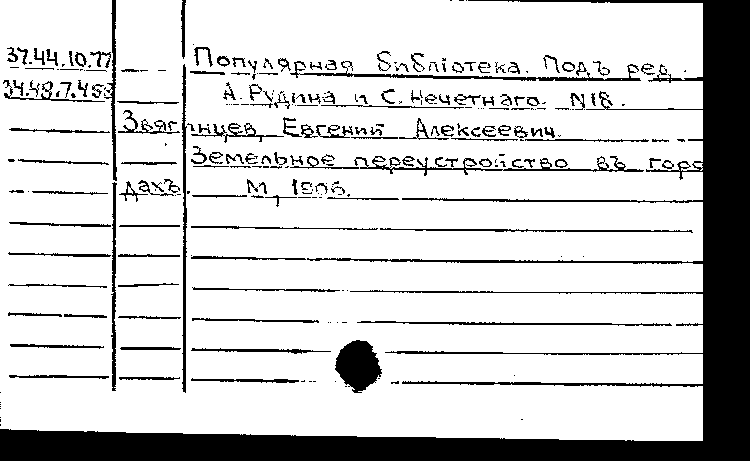 37.44.10.77 Популярная библіотека. Подъ ред.
34.48.7.488 А. Рудина и С. Нечетнаго. N18.
Звягинцев, Евгений Алексеевич.
Земельное переустройство въ горо
дахъ. М, 1906.